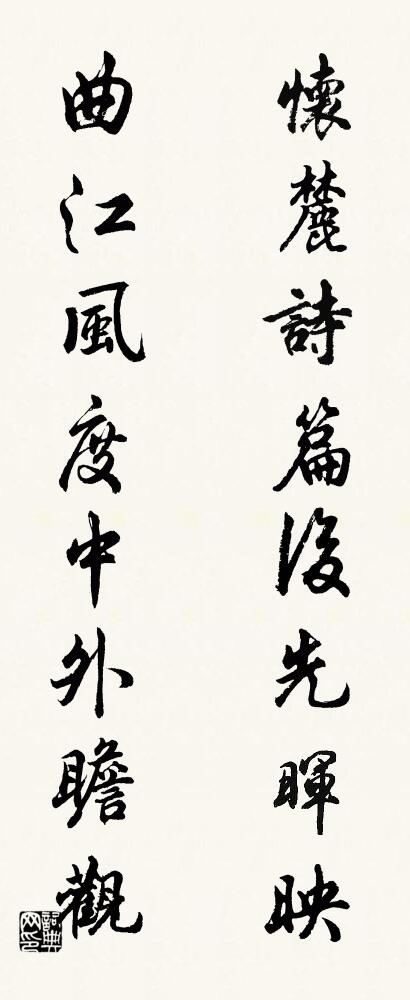 懷麓詩篇後先暉映
曲江風度中外瞻觀
詞典网印